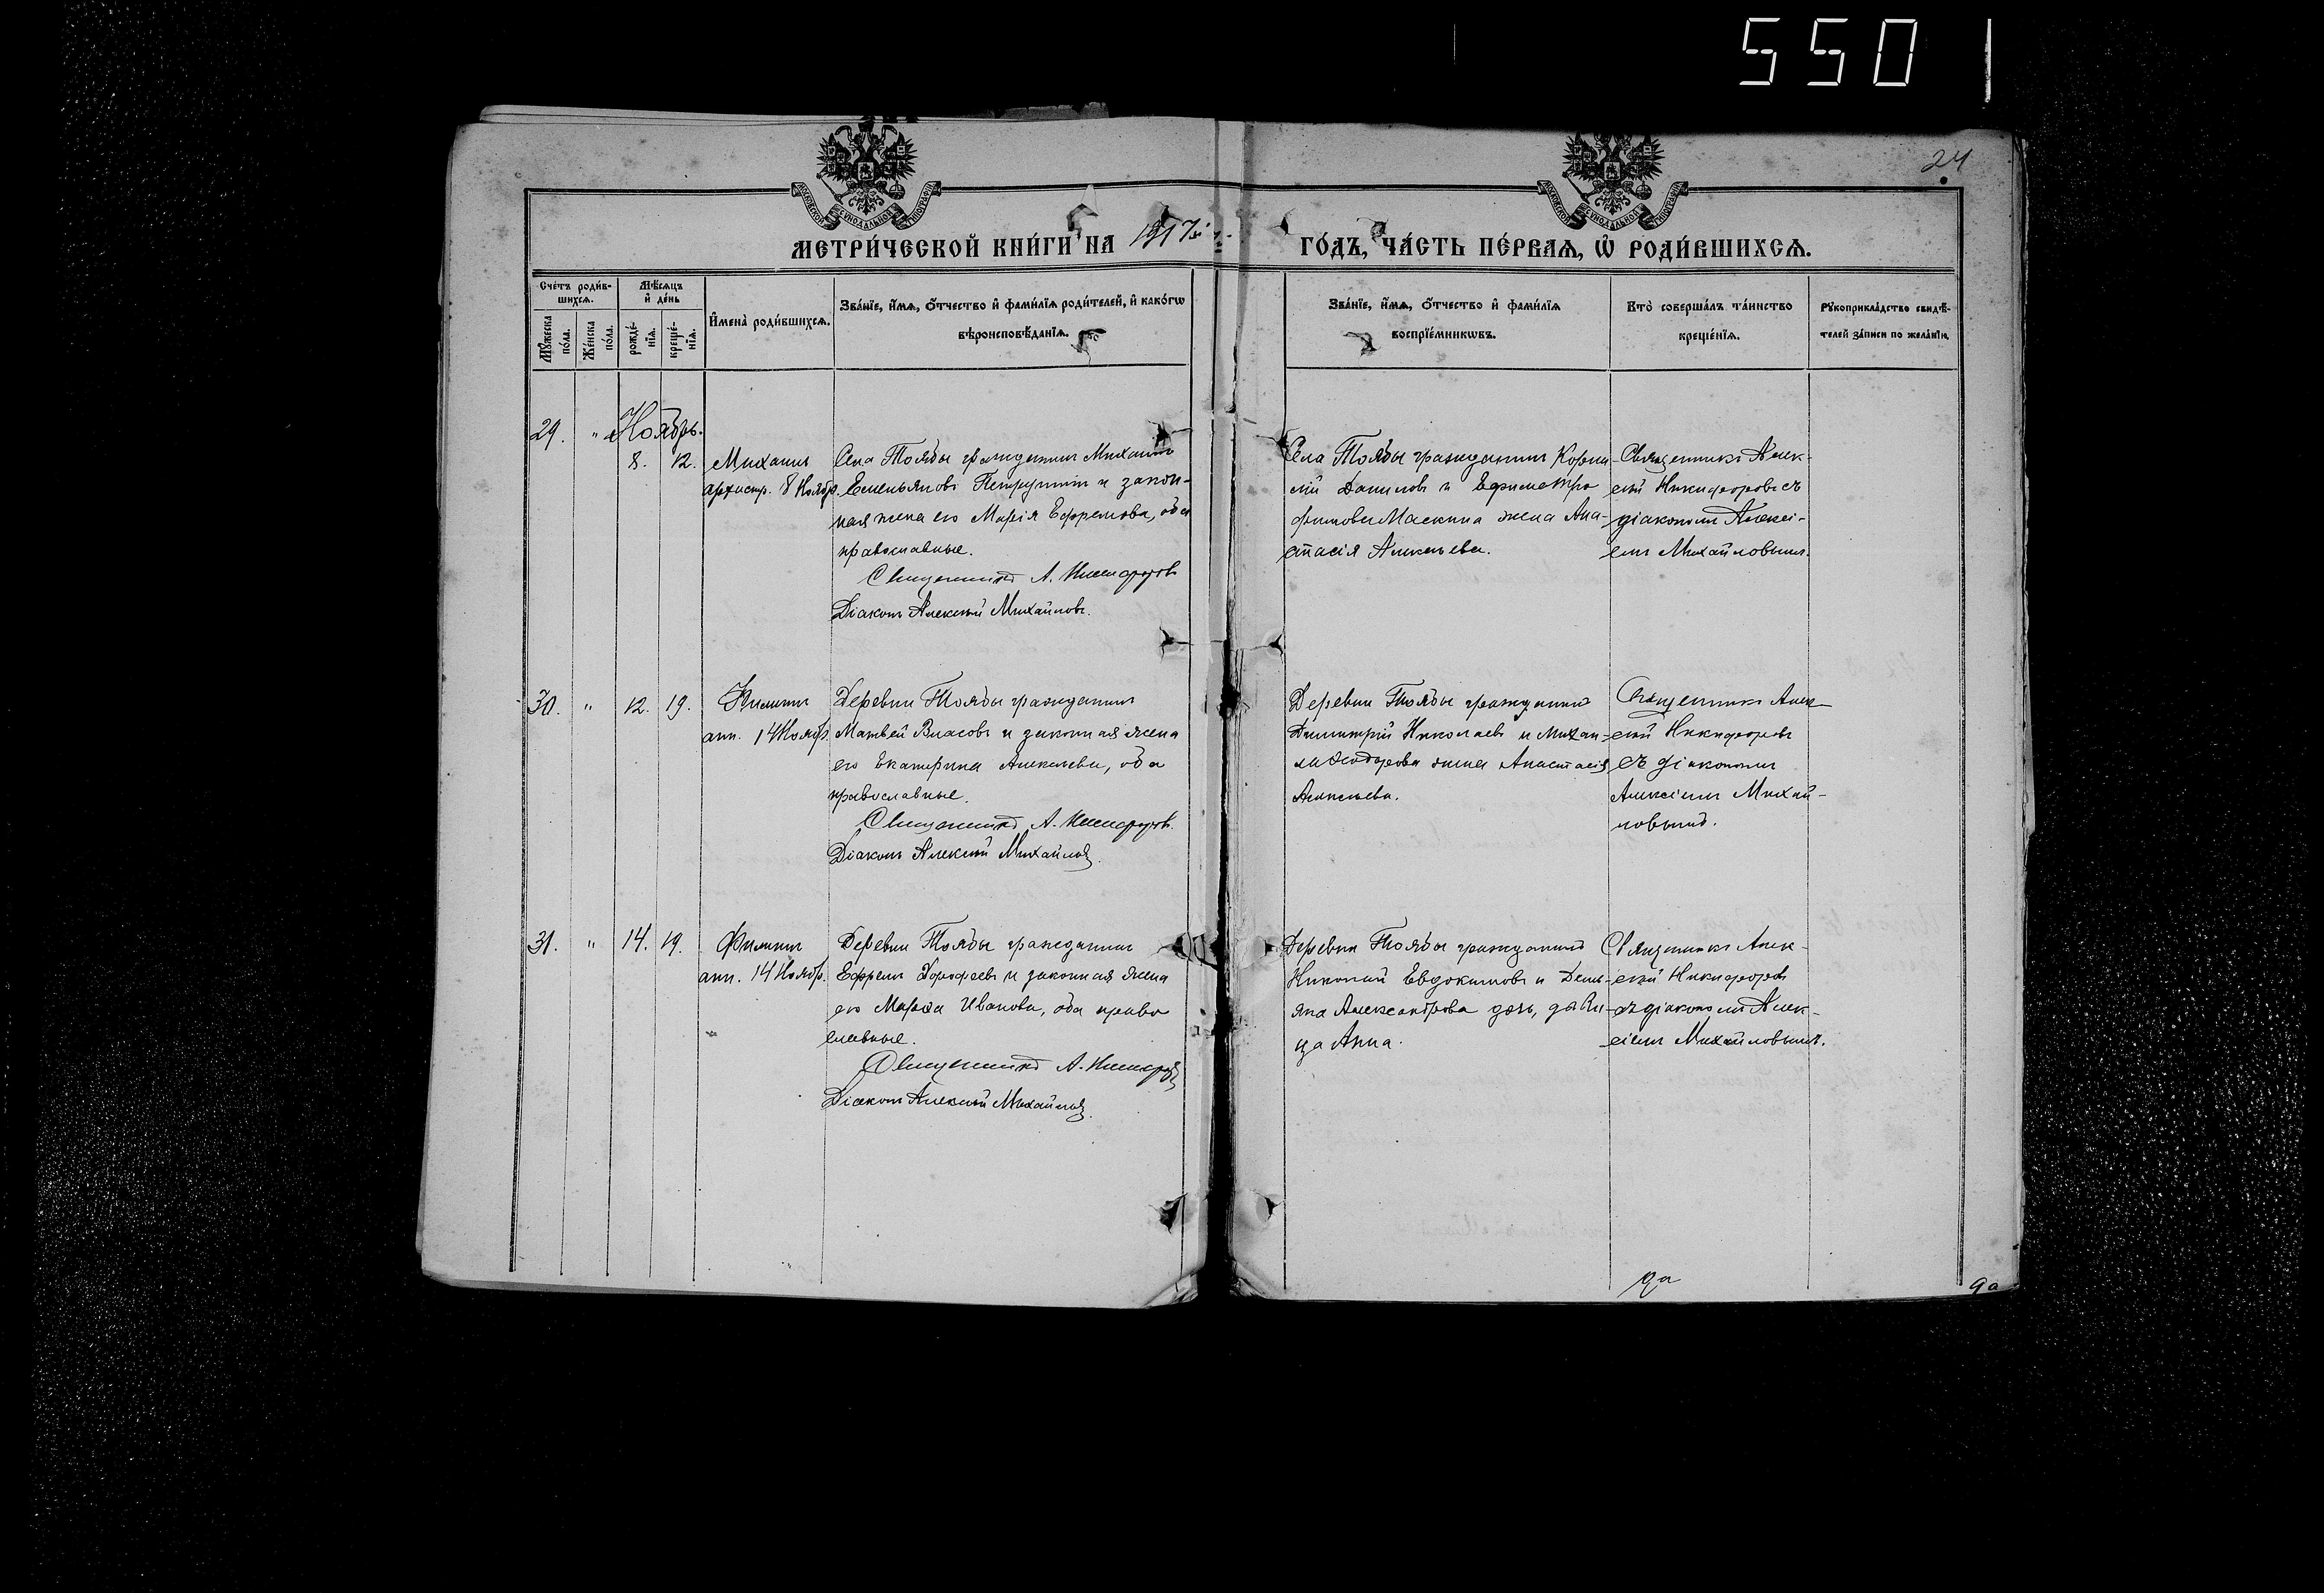 5501
24
МОСКОВСКОЙ СѴНОДАЛЬНОЙ ТИПОГРАФІИ
МОСКОВСКОЙ СѴНОДАЛЬНОЙ ТИПОГРАФІИ
МЕТРИ́ЧЕСКОЙ КНИ́ГИ НА 1917й г.
ГО́ДЪ, ЧА́СТЬ ПЕ́РВАѦ, Ѡ҆ РОДИ́ВШИХСѦ.
Сче́тъ роди́в-
шихсѧ.
Мꙋ́жеска по́ла.
Же́нска по́ла.
Мѣ́сѧцъ
и҆ де́нь
рожде́-
нїѧ.
креще́-
нїѧ.
И҆мена̀ роди́вшихсѧ.
Зва́нїе, и҆́мѧ, ѻ҆́тчество и҆ фами́лїѧ роди́телей, и҆ како́гѡ
вѣроисповѣ́данїѧ.
Зва́нїе, и҆́мѧ, ѻ҆́тчество и҆ фами́лїѧ
воспрїе́мникѡвъ.
Кто̀ соверша́лъ та́инство
креще́нїѧ.
Рꙋкоприкла́дство свидѣ́-
телей за́писи по жела́нїю.
29. " Ноябрь.
8. 12. Михаилъ
архистр. 8 Ноябр.
Села Тоябы гражданинъ Михаилъ
Емельяновъ Петрунинъ и закон-
ная жена его Марія Ефремова, оба
православные.
Священникъ А. Никифоровъ
Діаконъ Алексѣй Михайловъ.
Села Тоябы гражданинъ Корни-
лій Даниловъ и Ефима Тро
фимова Маскина жена Ана-
стасія Алексѣева.
Священникъ Алек-
сѣй Никифоровъ съ
діакономъ Алексі-
емъ Михайловымъ.
30. " 12. 19. Филиппъ
ап. 14 Ноябр.
Деревни Тоябы гражданинъ
Матвѣй Власовъ и законная жена
его Екатерина Алексѣева, оба
православные.
Священникъ А. Никифоровъ.
Діаконъ Алексѣй Михайловъ.
Деревни Тоябы гражданинъ
Димитрій Николаевъ и Михаи-
ла Ѳеодорова жена Анастасія
Алексѣева.
Священникъ Алек-
сѣй Никифоровъ
съ діакономъ
Алексіемъ Михай-
ловымъ.
31. " 14. 19. Филиппъ
ап. 14 Ноябр.
Деревни Тоябы гражданинъ
Ефремъ Дорофеевъ и законная жена
его Марѳа Иванова, оба право
славные.
Священникъ А. Никифоровъ
Діаконъ Алексѣй Михайловъ.
Деревни Тоябы гражданинъ
Николай Евдокимовъ и Демь-
яна Александрова дочь, дѣви-
ца Анна.
Священникъ Алек-
сѣй Никифоровъ
съ діакономъ Алек-
сіемъ Михайловымъ.
9а